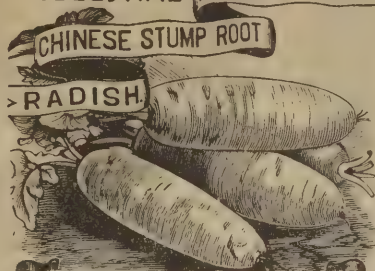 CHINESE STUMP ROOT
RADISH